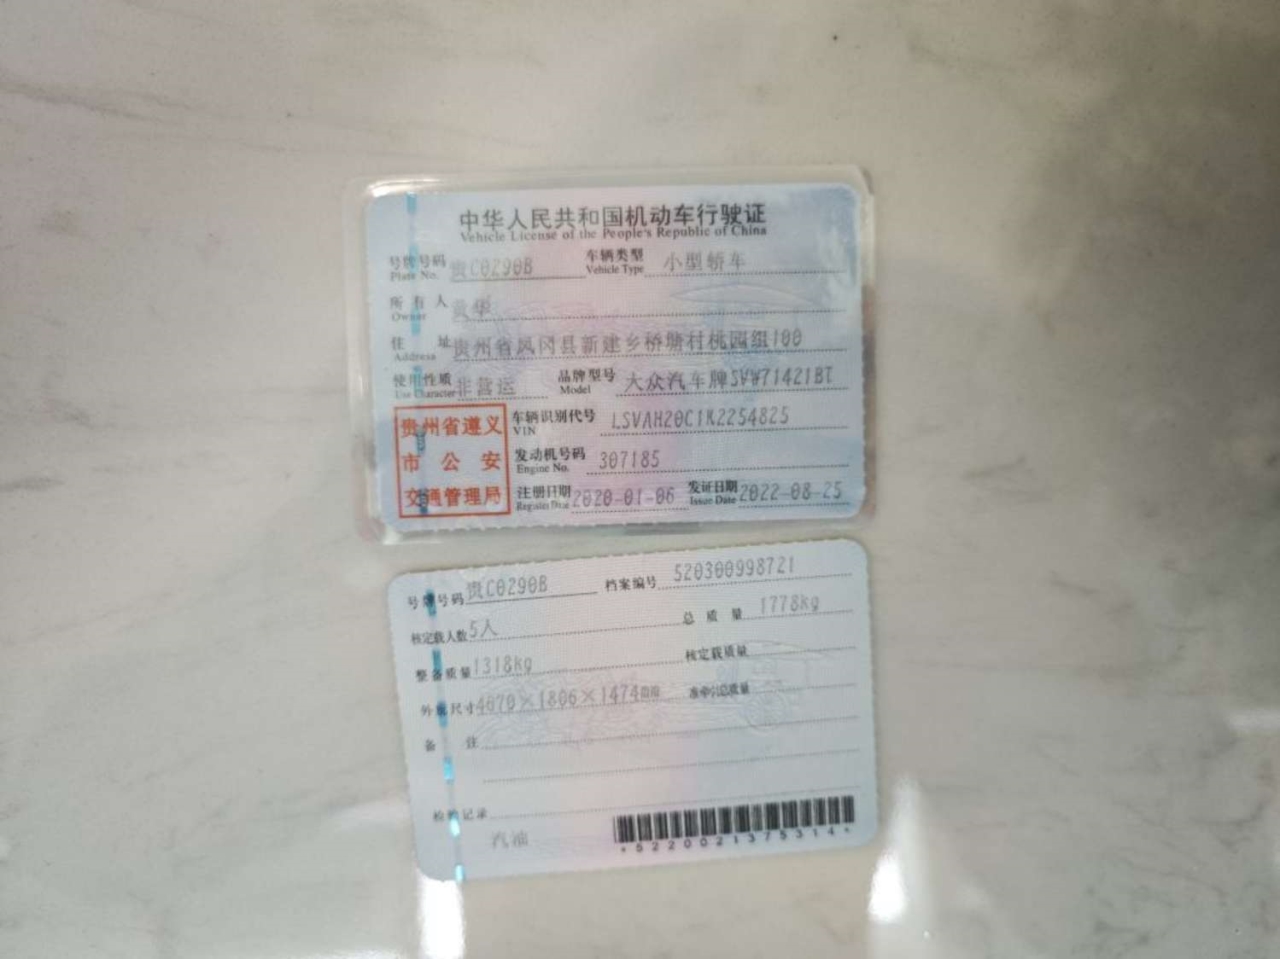 中华人民共和国机动车行驶证
Vehicle License of the People's Republic of China
号牌号码 贵C0290B 车辆类型 小型轿车
Plate No. Vehicle Type
所有人 华
Owner
住址 贵州省凤冈县新建乡桥塘村桃园组100
Address
使用性质 非营运 品牌型号 大众汽车牌SVW71421BT
Use Character Model
贵州省遵义
市公安
交通管理局
车辆识别代号 LSVAH20C1K2254825
VIN
发动机号码 307185
Engine No.
注册日期 2020-01-06 发证日期 2022-08-25
Register Date Issue Date
号牌号码 贵C0290B 档案编号 520300998721
核定载人数 5人 总质量 1778kg
整备质量 1318kg 核定载质量
外廓尺寸 4670×1806×1474mm 准牵引总质量
备注
检验记录
汽油
*5220021375314*